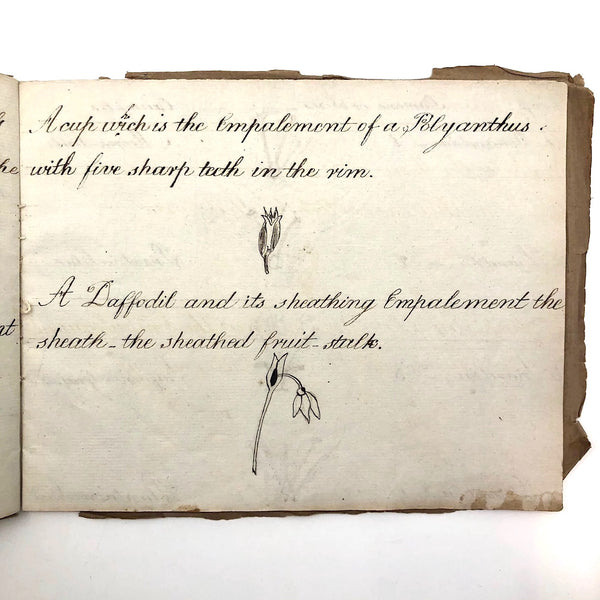 A cup wch is the Empalement of a Polyanthus
he with five sharp teeth in the rim.
A Daffodil and its sheathing Empalement the
nt sheath - the sheathed fruit - stalk.